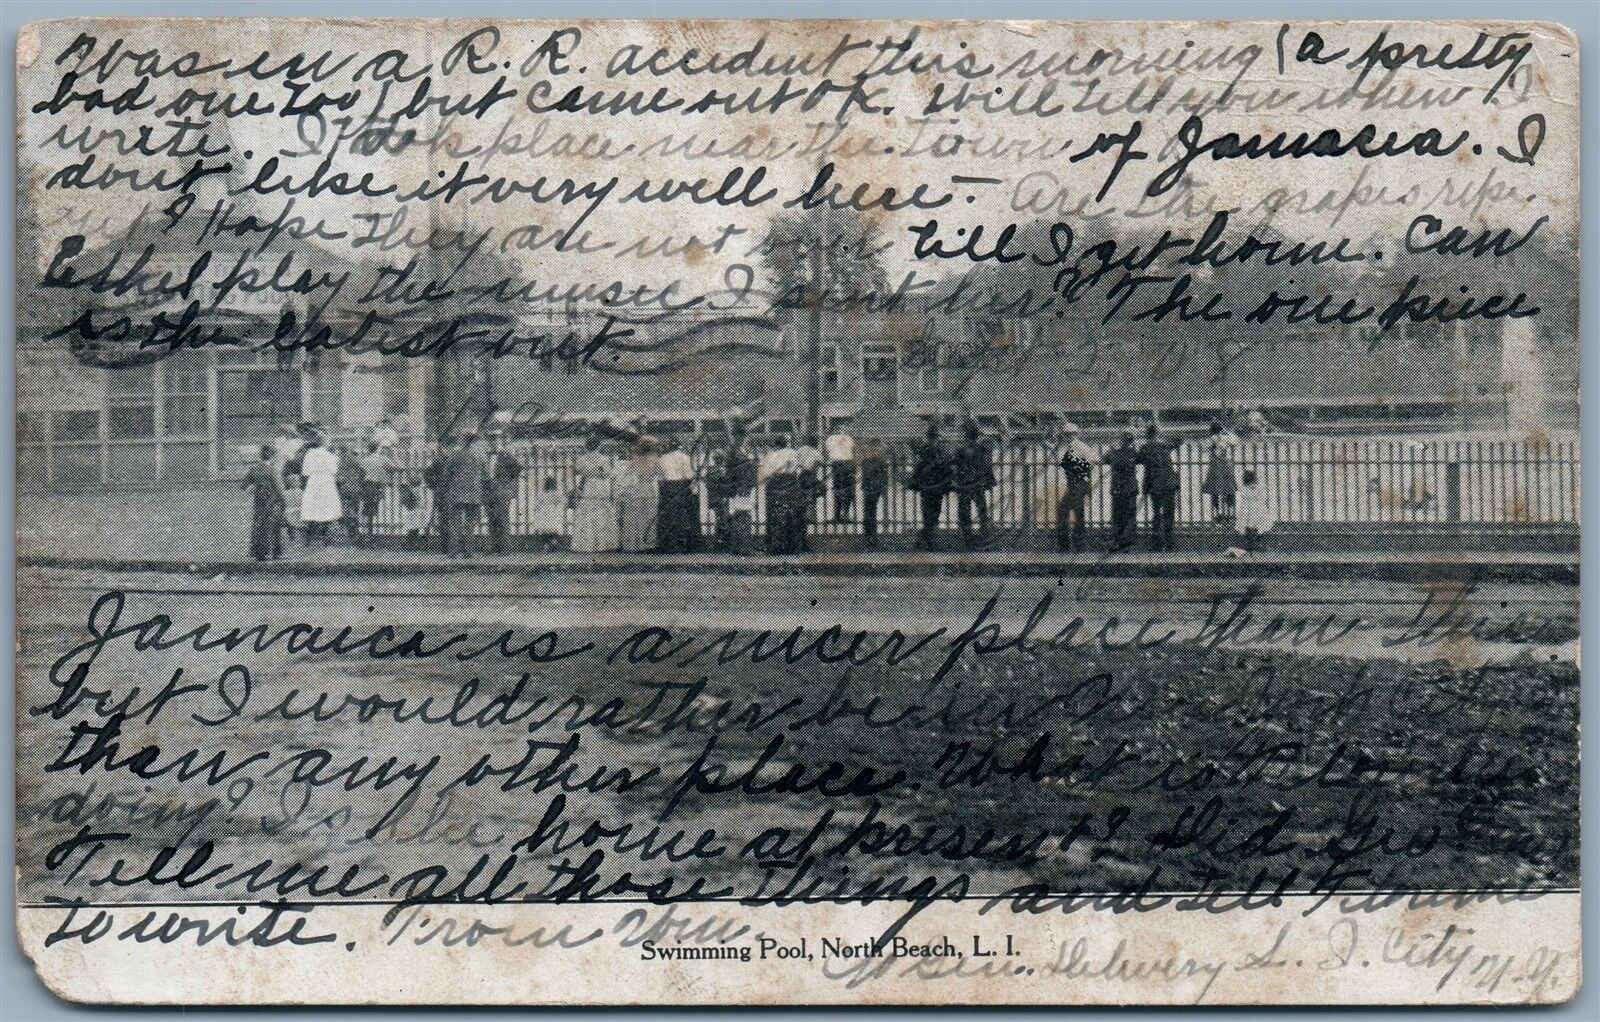 Was in a R. R. accident this morning (a pretty
bad one too) but came out OK. Will tell you when I
write. It took place near the town of Jamacia. I
dont like it very well here. Are the grapes ripe
yet? I Hope they are not over till I get home. Can
Ethel play the music I sent her? The one piece
is the latest out.
Sept 2, 08
Jamaica is a nicer place than this
but I would rather be in New York City
than any other place. What is
doing? Is she home at present? Did Geo
Tell me all those things and tell
to write. From Wm.
Swimming Pool, North Beach, L. I.
Gen. Delivery L. I. City N.Y.